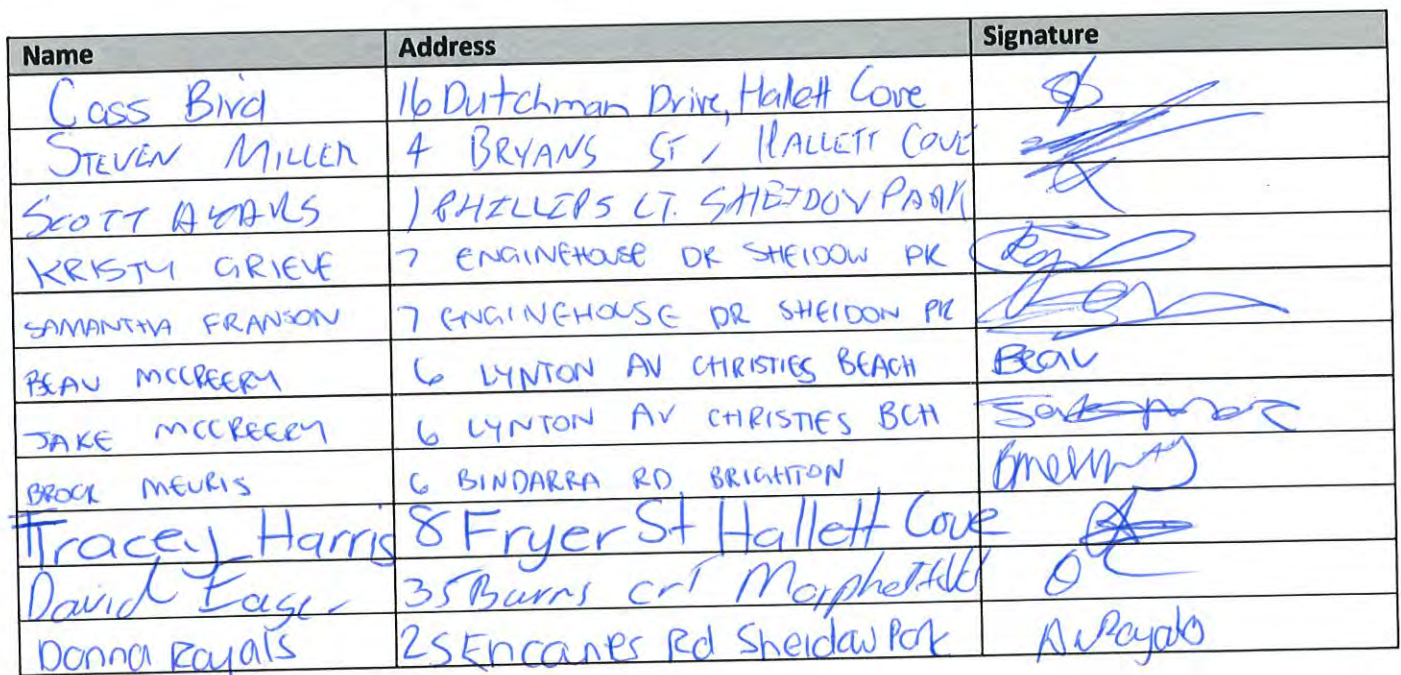 Name Address Signature
Cass Bird 16 Dutchman Drive, Halett Cove
STEVEN MILLER 4 BRYANS ST, HALLETT COVE
SCOTT 1 PHILLIPS CT. SHEIDOW PARK
KRISTY GRIEVE 7 ENGINEHOUSE DR SHEIDOW PK
SAMANTHA FRANSON 7 ENGINEHOUSE DR SHEIDOW PK
BEAU MCCREERY 6 LYNTON AV CHRISTIES BEACH Beau
JAKE MCCREERY 6 LYNTON AV CHRISTIES BCH
BROCK MEURIS 6 BINDARRA RD BRIGHTON
Tracey Harris 8 Fryer St Hallett Cove
David 35 Burns crt
Donna Royals 25 Rd Sheidow Park